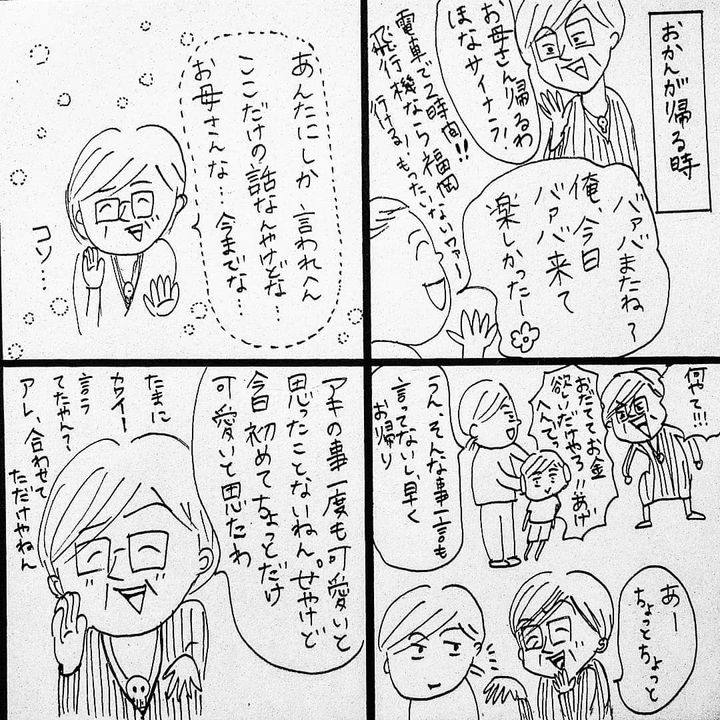 おかんが帰る時
お母さん帰るわ
ほなサイナラ!
電車で2時間!!
飛行機なら福岡
行ける!もったいないワァー
バァバまたね?
俺、今日
バァバ来て
楽しかったー
何やて!!!
おだててお金
欲しいだけやろ!!あげ
へんで。
うん、そんな事一言も
言ってないし早く
お帰り
あー
ちょっとちょっと
あんたにしか言われへん
ここだけの話なんやけどな…
お母さんな…今までな…
コソ…
アキの事一度も可愛いと
思ったことないねん。せやけど
今日初めてちょっとだけ
可愛いと思たわ
たまに
カワイー
言う
てたやん?
アレ、合わせて
ただけやねん